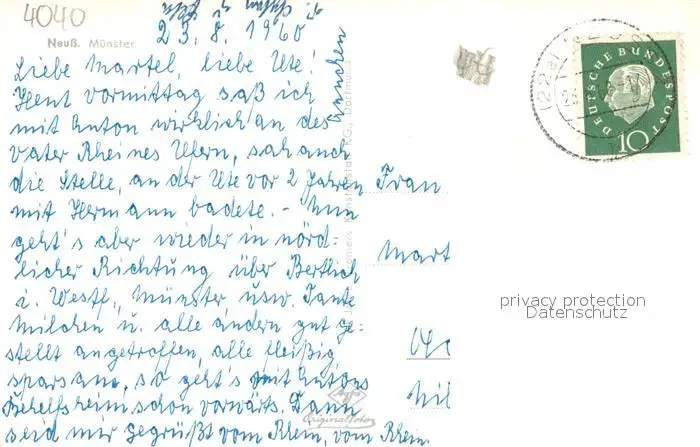 4040
23. 8. 1960
Neuß. Münster
Liebe Martel, liebe Ute!
Heut vormittag saß ich
mit Anton wirklich an des
Vater Rheines Ufern, sah auch
die Stelle, an der Ute vor 2 Jahren
mit Hermann badete. - Nun
geht's aber wieder in nörd-
licher Richtung über Bertlich
i. Westf., Münster usw. Tante
Milchen u. alle andern gut ge-
stellt angetroffen, alle fleißig
sparsam, so geht's mit Antons
Behelfsheim schon vorwärts. Dann
seid mir gegrüßt vom Rhein, vom Rhein
Annchen
Frau
Mart
Hil
DEUTSCHE BUNDESPOST
10
(22a)
Agfa
Originalfoto
privacy protection
Datenschutz